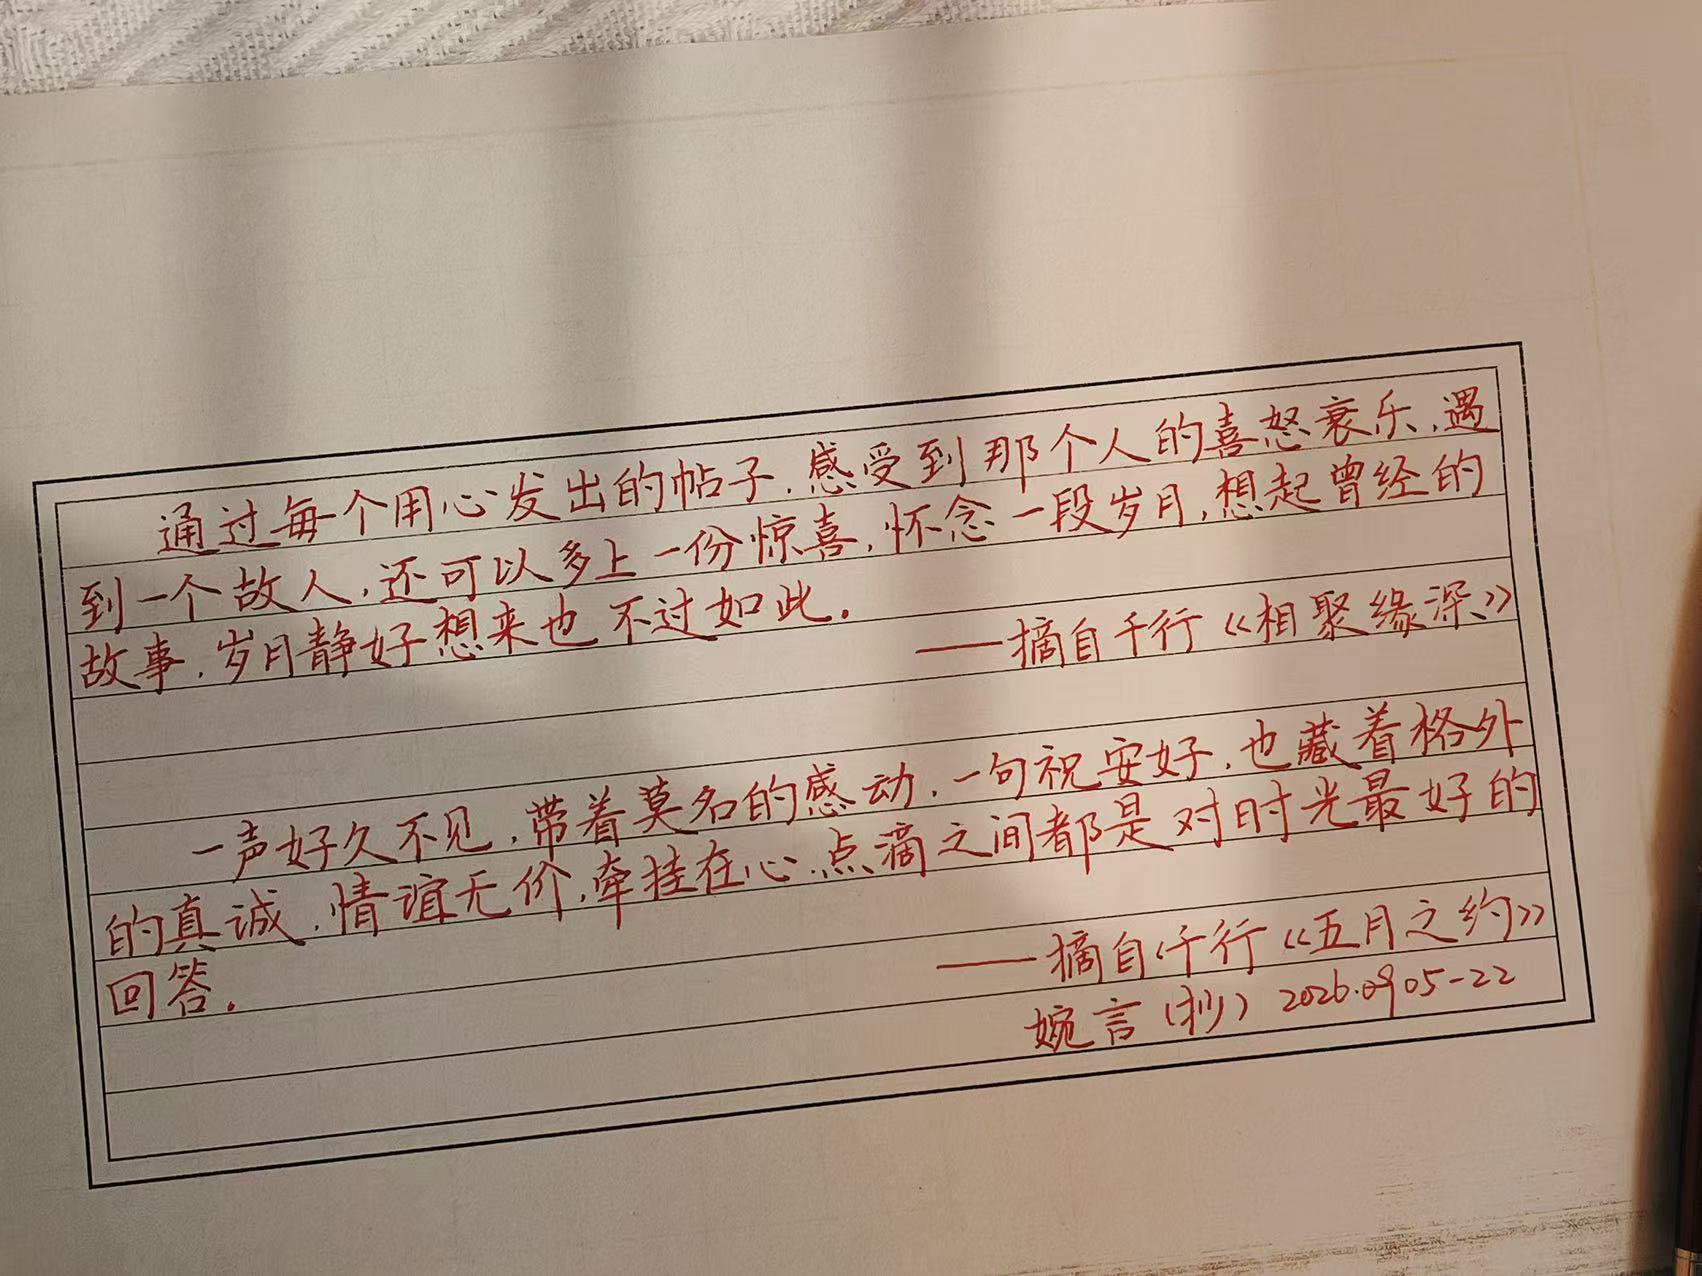 通过每个用心发出的帖子,感受到那个人的喜怒哀乐,遇
到一个故人,还可以多上一份惊喜,怀念一段岁月,想起曾经的
故事,岁月静好想来也不过如此。
——摘自千行《相聚缘深》
一声好久不见,带着莫名的感动,一句祝安好,也藏着格外
的真诚,情谊无价,牵挂在心,点滴之间都是对时光最好的
回答。
——摘自千行《五月之约》
婉言(抄) 2026.0905-22